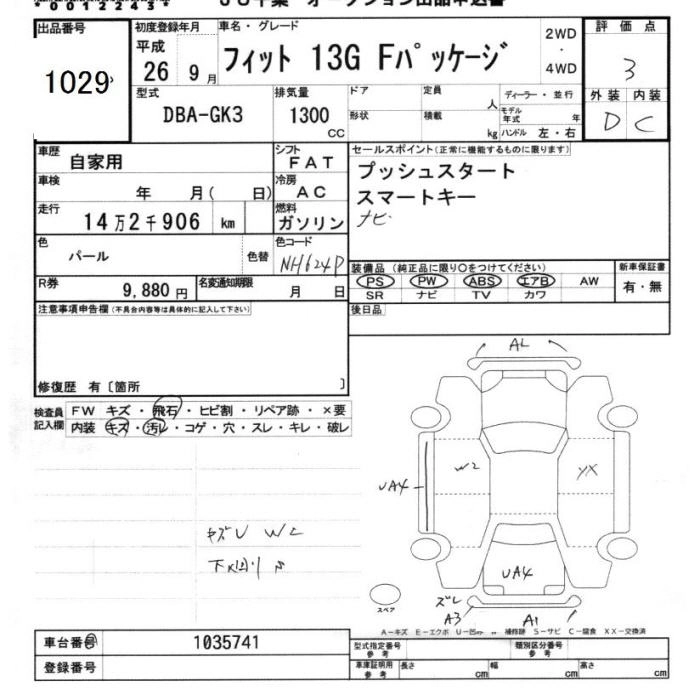 40012243
JU千葉 オークション出品申込書
出品番号 初度登録年月 車名・グレード 2WD ・ 4WD 評価点
1029 平成 26 9月 フィット 13G Fパッケージ 3
型式 排気量 ドア 定員 人 ディーラー・並行 外装 内装
DBA-GK3 1300 CC 形状 積載 kg モデル年式 年 D C
ハンドル 左・右
車歴 自家用 シフト FAT セールスポイント(正常に機能するものに限ります)
車検 年 月( 日) 冷房 AC プッシュスタート
走行 14万2千906 km 燃料 ガソリン スマートキー
ナビ
色 パール 色替 色コード NH624P
装備品 (純正品に限り○をつけてください) 新車保証書
R券 9,880円 名変通知期限 月 日 PS PW ABS エアB AW 有・無
SR ナビ TV カワ
注意事項申告欄(不具合内容等は具体的に記入して下さい) 後日品
修復歴 有〔箇所 〕
検査員記入欄 FW キズ・飛石・ヒビ割・リペア跡・×要
内装 キズ・汚レ・コゲ・穴・スレ・キレ・破レ
AL
UA4 W2 YX
キズU W2
下回りS
UA4
スペア
ズレ
A3 A1
A-キズ E-エクボ U-凹 補修跡 S-サビ C-腐食 XX-交換済
車台番号 1035741 型式指定番号 参考 類別区分番号 参考
登録番号 車庫証明用 参考 長さ cm 幅 cm 高さ cm